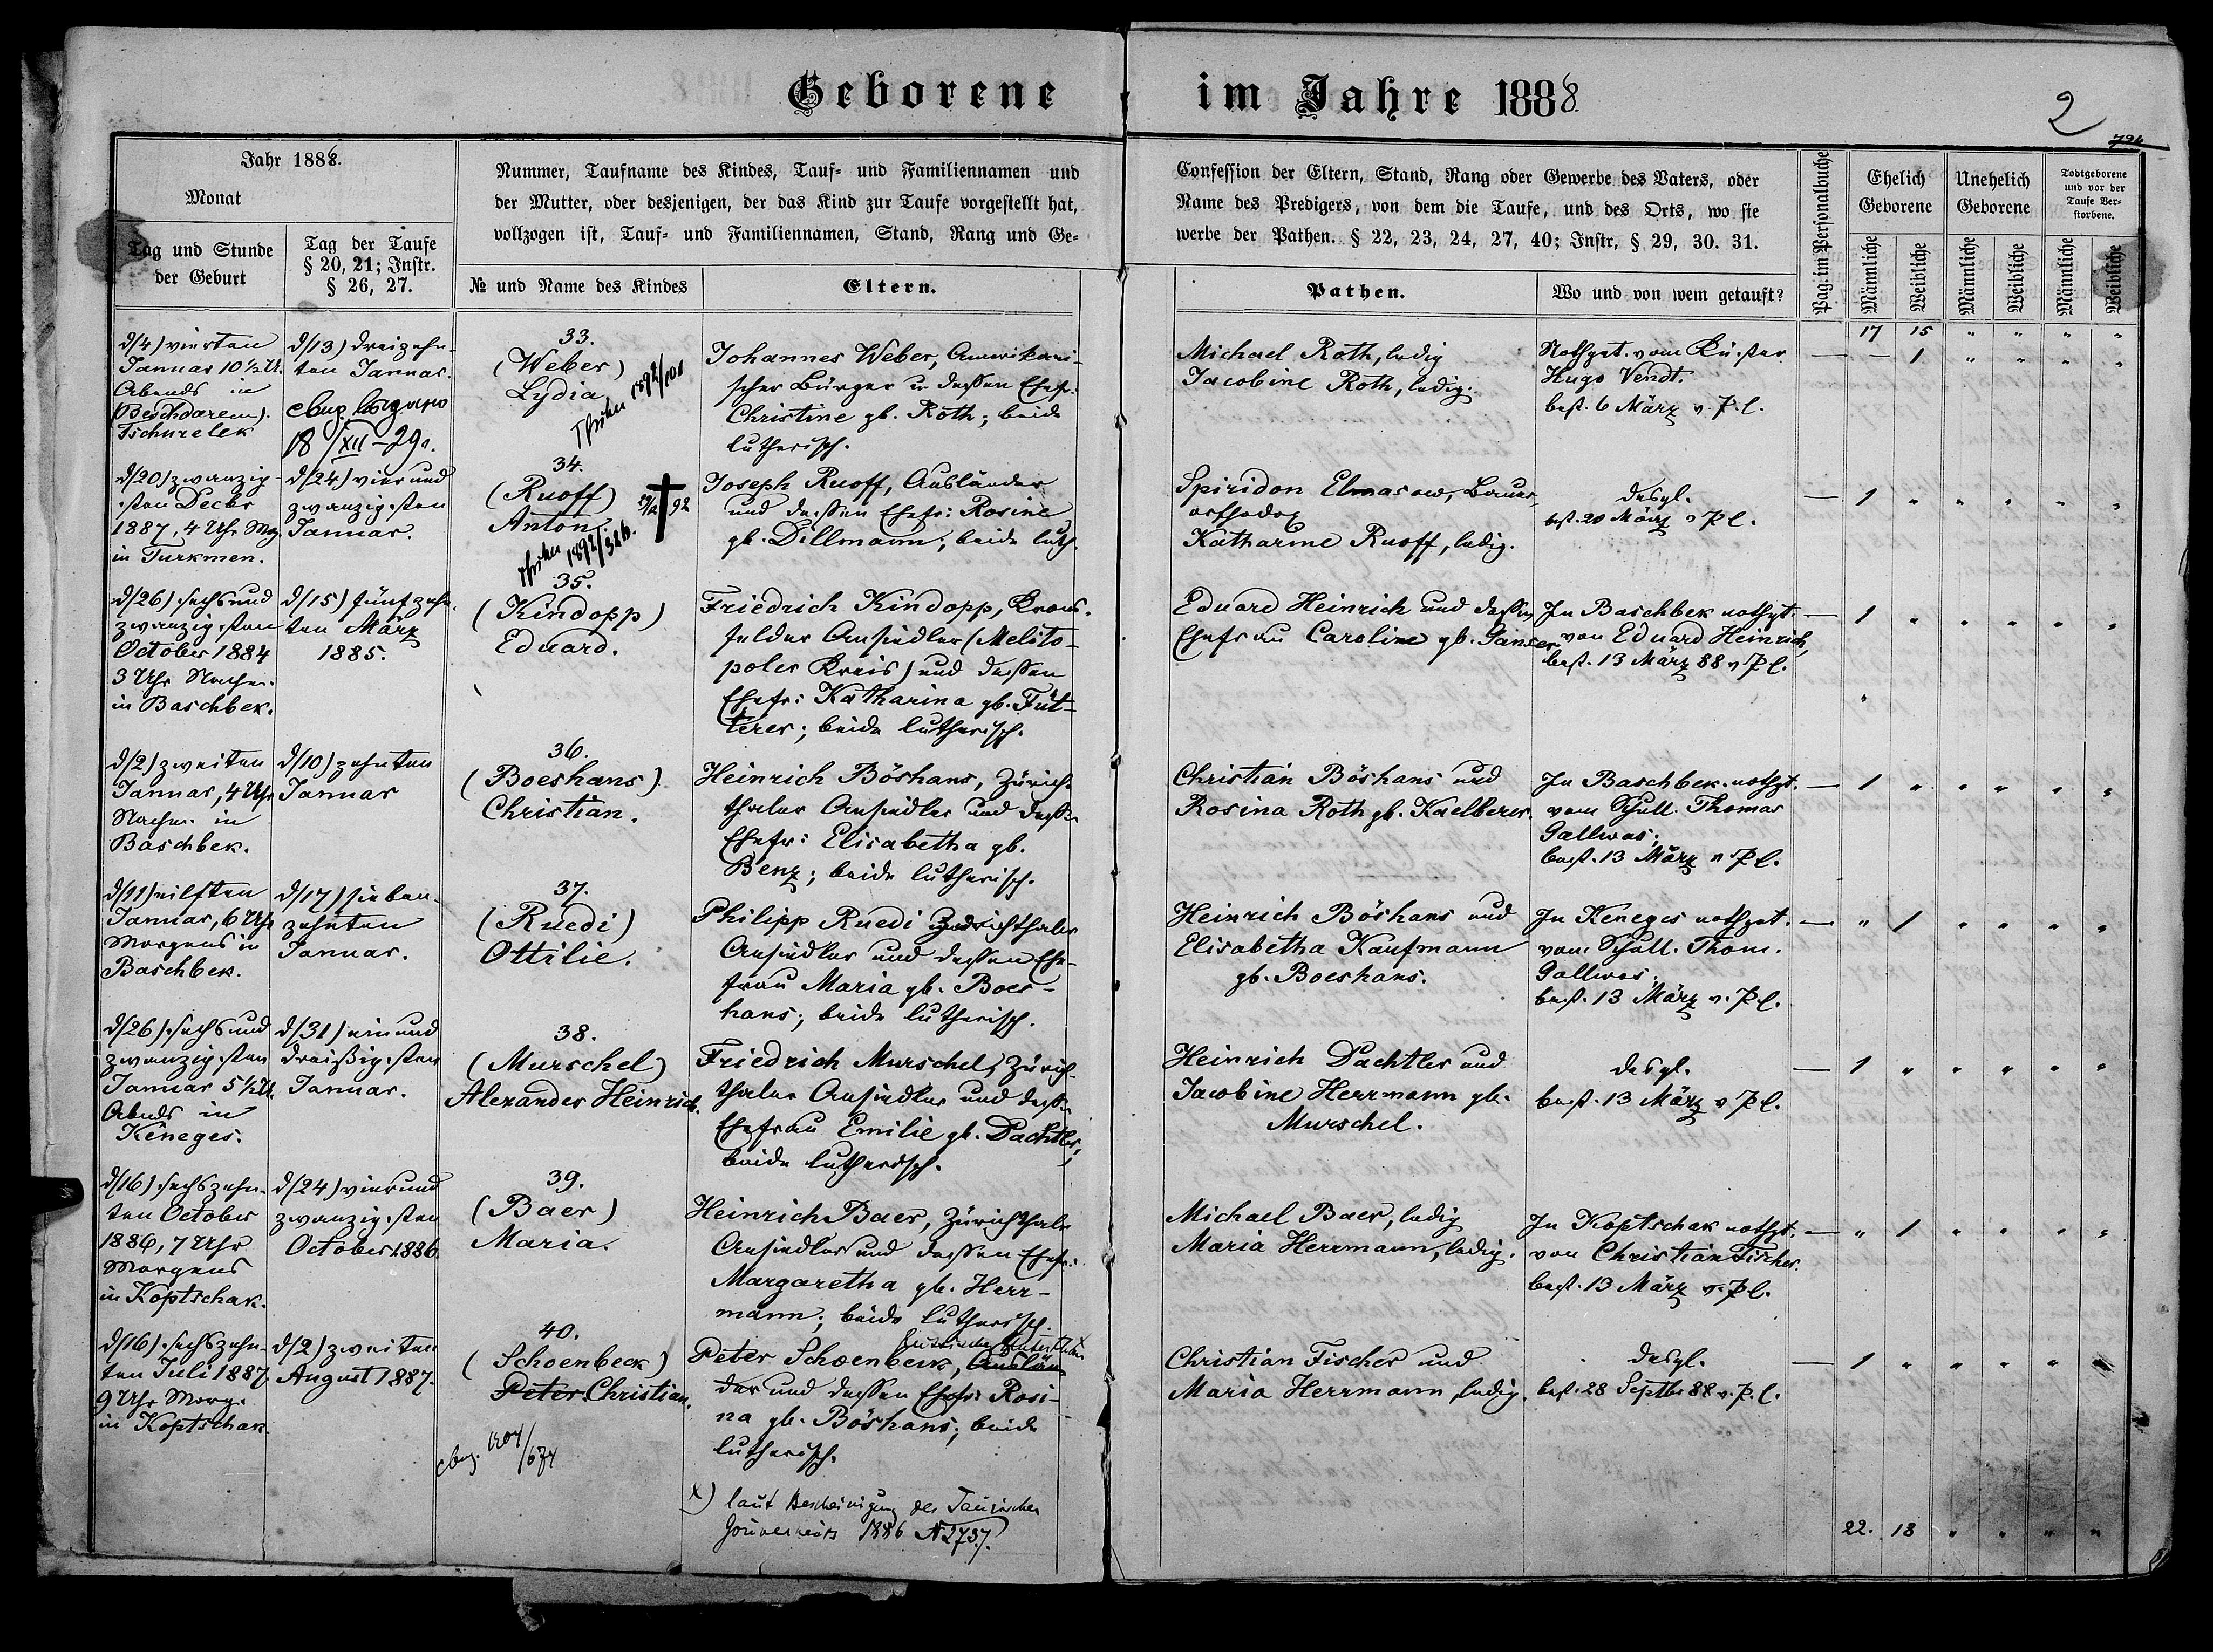 Geborene im Jahre 1888.
2
Jahr 1888.
Monat
Tag und Stunde
der Geburt
Tag der Taufe
§ 20, 21; Instr.
§ 26, 27.
Nummer, Taufname des Kindes, Tauf- und Familiennamen und
der Mutter, oder desjenigen, der das Kind zur Taufe vorgestellt hat,
vollzogen ist, Tauf- und Familiennamen, Stand, Rang und Ge-
№ und Name des Kindes
Eltern.
Confession der Eltern, Stand, Rang oder Gewerbe des Vaters, oder
Name des Predigers, von dem die Taufe, und des Orts, wo sie
werbe der Pathen. § 22, 23, 24, 27, 40; Instr, § 29, 30. 31.
Pathen.
Wo und von wem getauft?
Pag. im Personalbuche
Ehelich
Geborene
Unehelich
Geborene
Todtgeborene
und vor der
Taufe Ver-
storbene.
Männliche
Weibliche
Männliche
Weibliche
Männliche
Weibliche
17 15 " " " "
d/4) vierten
Januar 10 ½ U.
Abends in
(Beschdarem).
Tschurelek
d/13) dreizehn-
ten Januar.
18/XII-29 г.
33.
(Weber)
Lydia
1892/101
Johannes Weber, Amerikani-
scher Bürger u dessen Ehefr.
Christine gb. Roth; beide
lutherisch.
Michael Roth, ledig
Jacobine Roth, ledig.
Nothget. vom Küster
Hugo Vendt.
best. 6 März v. P. l.
— — 1 " " "
d/20) zwanzig-
sten Decbr
1887, 4 Uhr Mrg.
in Turkmen.
d/24) vier und
zwanzigsten
Januar.
34.
(Ruoff)
Anton.
92
1892/326.
Joseph Ruoff, Ausländer
und dessen Ehefr: Rosine
gb. Dillmann; beide luth.
Spiridon Elmasow, Bauer
orthodox
Katharine Ruoff, ledig.
desgl.
best. 20 März v P l.
— 1 " " " " "
d/26) sechs und
zwanzigsten
October 1884
3 Uhr Nachm.
in Baschbek.
d/15) fünfzehn-
ten März
1885.
35.
(Kindopp)
Eduard.
Friedrich Kindopp, Krons-
felder Ansiedler (Melito-
poler Kreis) und dessen
Ehefr: Katharina gb. Füt-
terer; beide lutherisch.
Eduard Heinrich und dessen
Ehefrau Caroline gb. Ganser
In Baschbek nothgt
von Eduard Heinrich,
best. 13 März 88 v P l.
— 1 " " " " "
d/2) zweiten
Januar, 4 Uhr
Nachm. in
Baschbek.
d/10) zehnten
Januar
36.
(Boeshans)
Christian.
Heinrich Böshans, Zürich-
thaler Ansiedler und dessen
Ehefr: Elisabetha gb.
Benz; beide lutherisch.
Christian Böshans und
Rosina Roth gb. Kaelberer.
In Baschbek nothgt.
vom Schull. Thomas
Gallwas;
best. 13 März v P l.
— 1 " " " " "
d/11) eilften
Januar, 6 Uhr
Morgens in
Baschbek.
d/17) sieben-
zehnten
Januar.
37.
(Ruedi)
Ottilie.
Philipp Ruedi Zürichthaler
Ansiedler und dessen Ehe-
frau Maria gb. Boes-
hans; beide lutherisch.
Heinrich Böshans und
Elisabetha Kaufmann
gb. Boeshans.
In Keneges nothget.
vom Schull. Thom.
Gallwas;
best. 13 März v. P. l.
— " 1 " " " "
d/26) sechs und
zwanzigsten
Januar 5 ½ U.
Abends in
Keneges.
d/31) ein und
dreißigsten
Januar.
38.
(Murschel)
Alexander Heinrich.
Friedrich Murschel, Zürich-
thaler Ansiedler und dessen
Ehefrau Emilie gb. Dachtler;
beide lutherisch.
Heinrich Dachtler und
Jacobine Herrmann gb.
Murschel.
desgl.
best. 13 März v P l.
— 1 " " " " "
d/16) sechszehn-
ten October
1886, 7 Uhr
Morgens
in Koptschak.
d/24) vier und
zwanzigsten
October 1886.
39.
(Baer)
Maria.
Heinrich Baer, Zürichthaler
Ansiedler und dessen Ehefr:
Margaretha gb. Herr-
mann; beide lutherisch.
Michael Baer, ledig
Maria Herrmann, ledig.
In Koptschak nothgt.
von Christian Fischer.
best. 13 März v. P l.
— " 1 " " " "
d/16) sechszehn-
ten Juli 1887.
9 Uhr Morg.
in Koptschak.
d/2) zweiten
August 1887.
40.
(Schoenbeck)
Peter Christian.
1904/674
Peter Schoenbeck, Auslän-
der und dessen Ehefr: Rosi-
na gb. Böshans; beide
lutherisch.
x) laut Bescheinigung des Taurischen
Gouverneurs 1886 N 2737.
Christian Fischer und
Maria Herrmann, ledig.
desgl.
best. 28 Septbr 88 v. P. l.
— 1 " " " " "
22. 18 " " " "